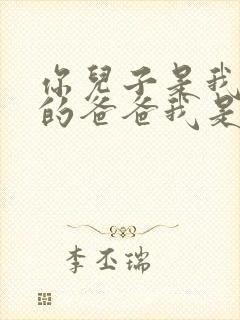 你兒子是我
的爸爸我是
李丕瑞